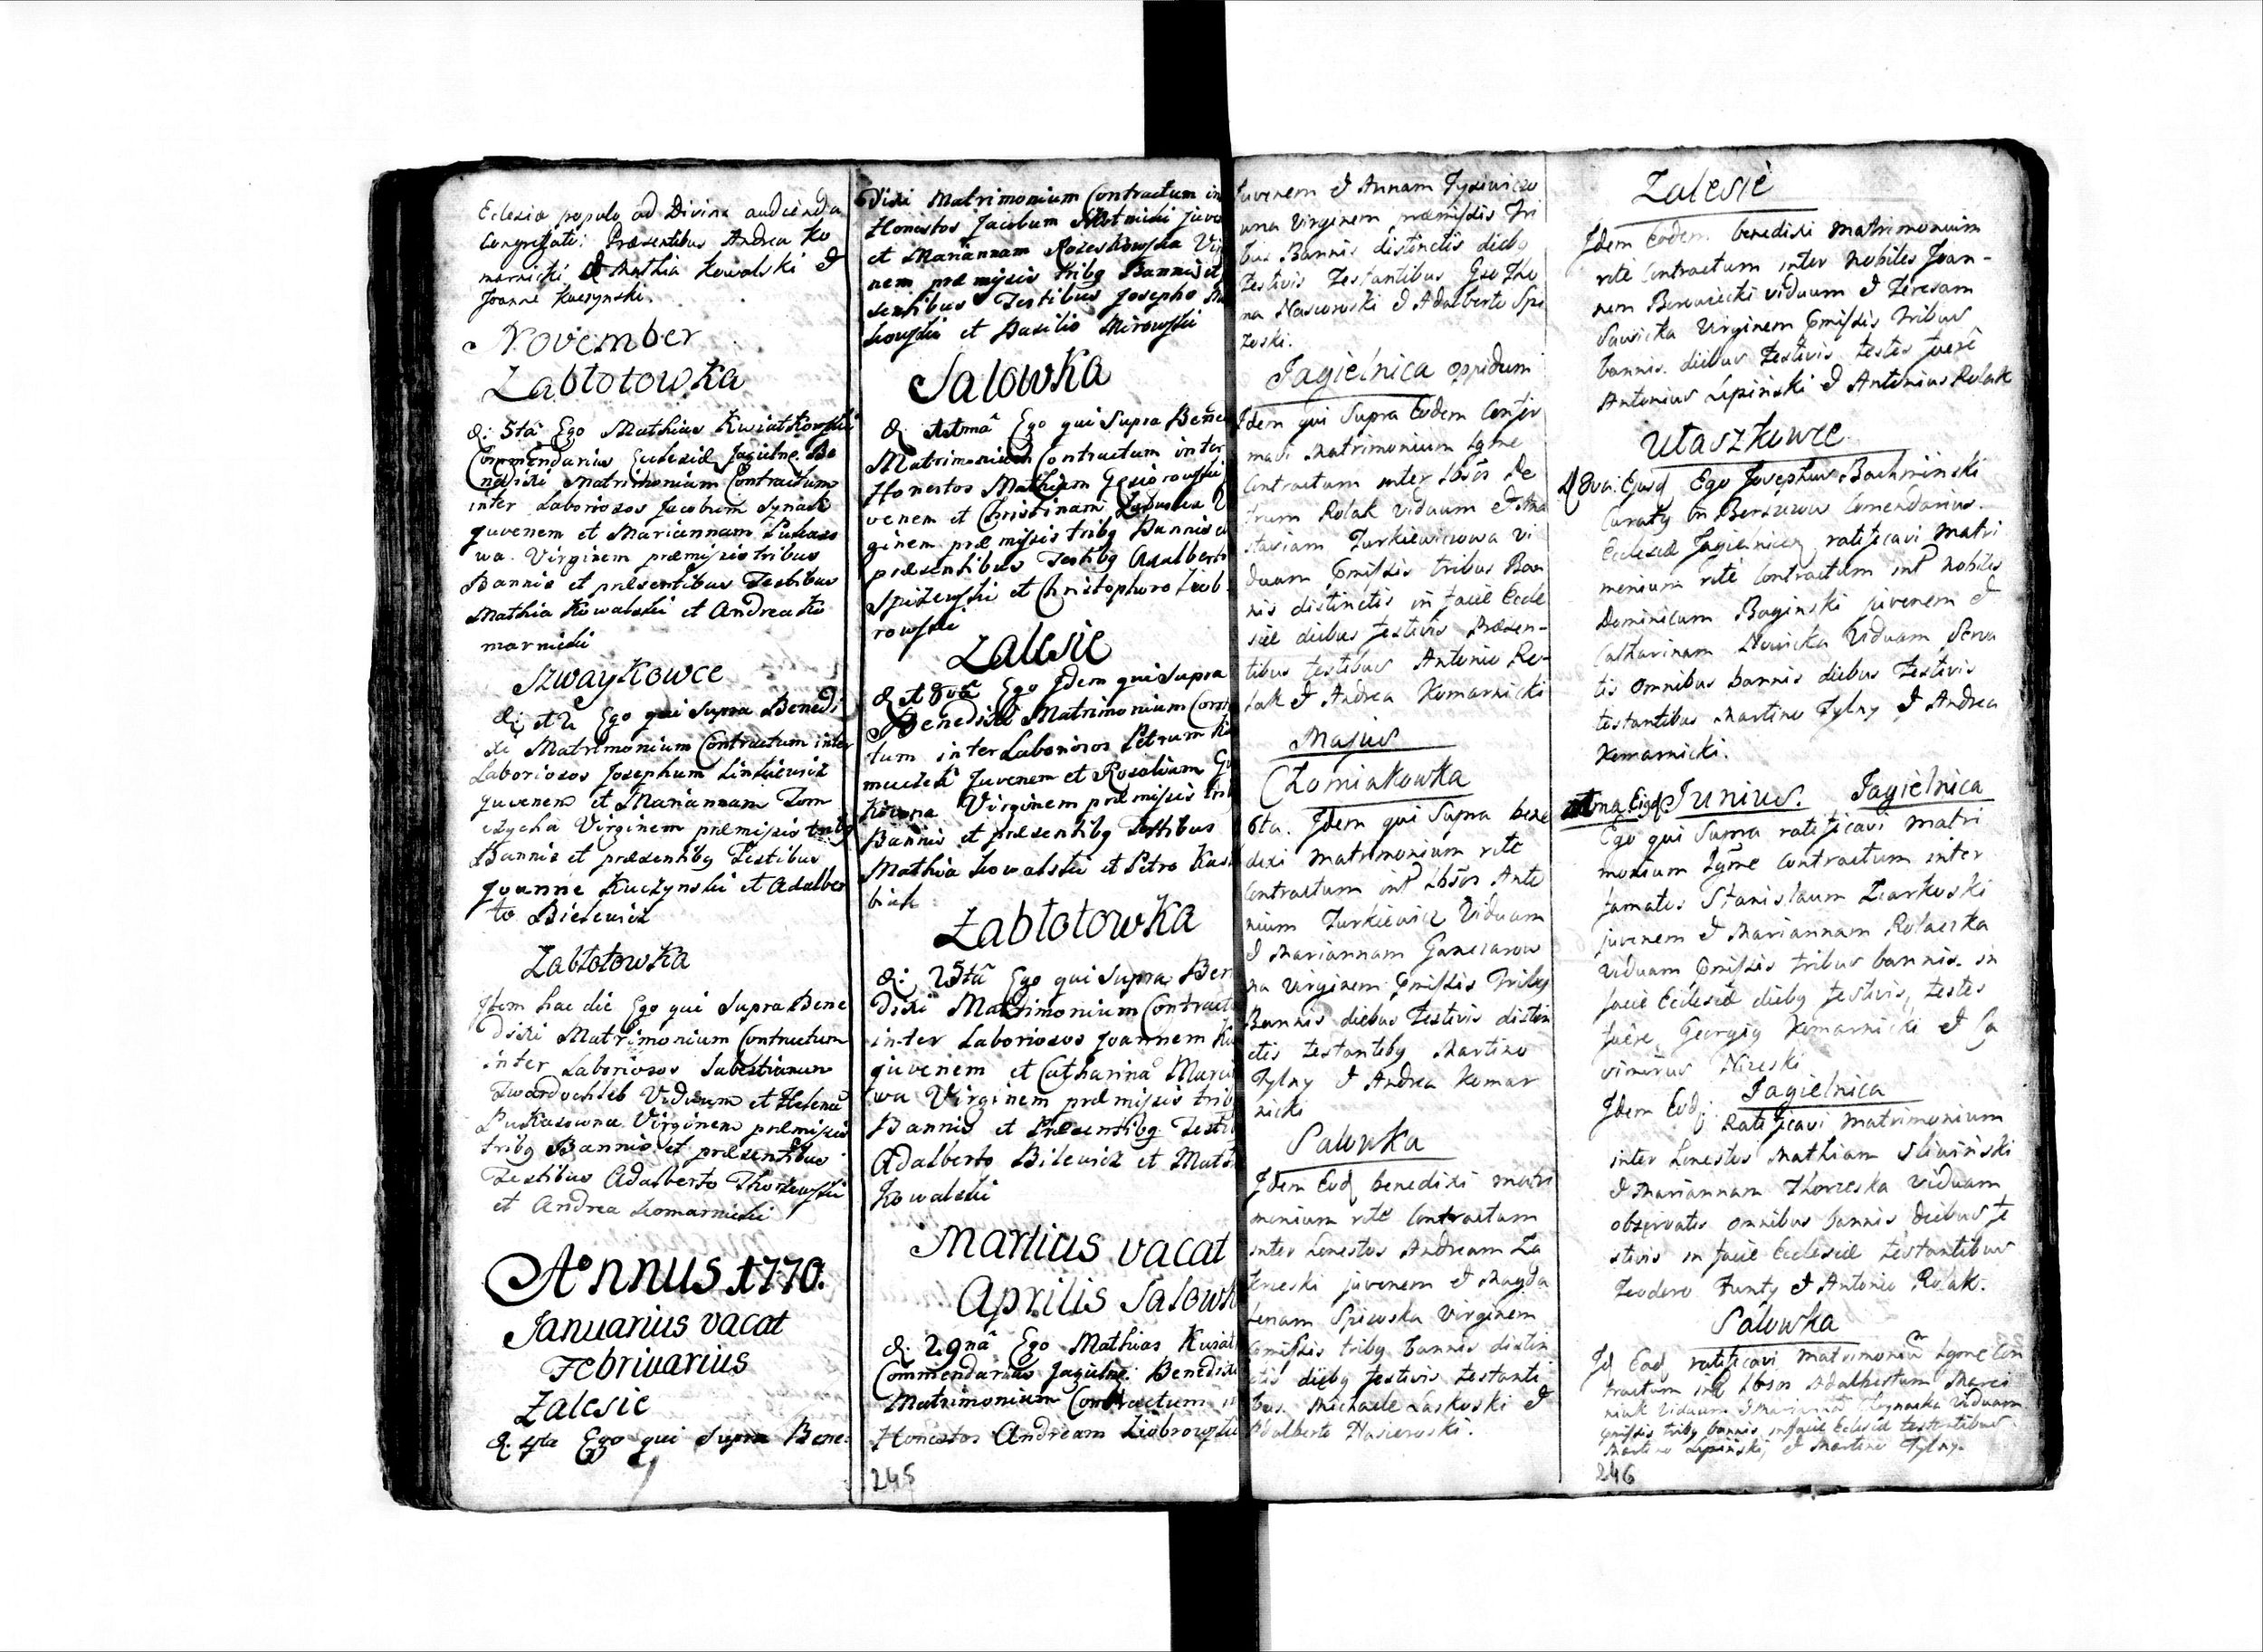 Eclesiæ populo ad Divina audienda
Congregati: Præsentibus Andrea Ko
marnicki & Mathia Kowalski &
Joanne Kuczynski.
November
Zabłotowka
d: 5tâ Ego Mathias Kwiatkowski
Commendarius Ecclesiæ Jagielne. Be
nedixi Matrimonium Contractum
inter Laboriosos Jacobum Synack
juvenem et Mariannam
wa Virginem præmissis tribus
Bannis et præsentibus Testibus
Mathia Kowalski et Andrea Ko
marnicki
Szwaykowce
d: 12 Ego qui Supra Benedi
xi Matrimonium Contractum inter
Laboriosos Josephum Linkiewicz
juvenem et Mariannam Tom
czycha Virginem præmissis tribq
Bannis et præsentibq Testibus
Joanne Kuczynski et Adalber
to Bielewicz
Zabłotowka
Item hac die Ego qui Supra Bene
dixi Matrimonium Contractum
inter Laboriosos Sabestianum
Twardochleb Viduum et Helenã
Łukasowna Virginem præmissis
tribq Bannis et præsentibus
Testibus Adalberto Thorzewski
et Andrea Komarnicki
Annus 1770.
Januarius vacat
Februarius
Zalesie
d. 4ta Ego qui Supra Bene:
dixi Matrimonium Contractum in
Honestos Jacobum juve
et Mariannam Rozeskowska Vir
nem præmissis tribq Bannis et
sentibus Testibus Josepho
kowski et Basilio Mirowski
Salowka
d. 11mâ Ego qui Supra Bene
Matrimonium Contractum inter
Honestos Mathiam Gąsiorowski
venem et Christinam
ginem præmissis tribq Bannis
præsentibus Testibq Adalberto
Spizewski et Christophoro Leob
rowski
Zalesie
d. 18vâ Ego Idem qui Supra
Benedixi Matrimonium Cont
tum inter Laboriosos Petrum Ko
Juvenem et Rosaliam
Virginem præmissis trib
Bannis et præsentibq Testibus
Mathia Kowalski et Petro Kas
biak
Zabłotowka
d: 25tâ Ego qui Supra Ben
dixi Matrimonium Contract
inter Laboriosos Joannem
juvenem et Catharinã Marci
wa Virginem præmissis trib
Bannis et Præsentibq Testi
Adalberto Bilewicz et Math
Kowalski
Martius vacat
Aprilis Salowk
d. 29nâ Ego Mathias Kwiat
Commendarius Jagielne: Benedixi
Matrimonium Contractum
Honestos Andream Ziobrowski
245
juvenem & Annam Tysiewiczo
wna Virginem præmissis Tri
bus Bannis distinctis diebq
Festivis Testantibus Geo Tho
ma Nascoroski & Adalberto Spi
zoski.
Jagielnica oppidum
Idem qui Supra Eodem Confir
mavi Matrimonium Lgtme
Contractum inter Lbsos Pe
trum Rolak Viduum & Ana
stasiam Turkiewiczowa Vi
duam pmissis tribus Ban
nis distinctis in facie Eccle
siæ diebus festivis Præsen-
tibus testibus Antonio Ro-
lak & Andrea Komarnicki
Majus
Chomiakowka
6ta. Idem qui Supra bene
dixi Matrimonium rite
Contractum int Lbsos Anto
nium Turkiewicz Viduum
& Mariannam Ganczarow
na Virginem pmissis Tribq
Bannis diebus Festivis distin
ctis testantibq Martino
Tylny & Andrea Komar
nicki
Salowka
Idem Eod benedixi matri
monium rite Contractum
inter Honestos Andream Za
& Magda
lenam Spiewska Virginem
pmissis tribq bannis distin
ctis diebq festivis testanti
bus Michaele Laskoski &
Adalberto Nascoroski.
Zalesie
Idem Eodem benedixi Matrimonium
rite Contractum inter Nobiles Joan-
nem viduum & Teresam
Sawicka Virginem pmissis tribus
bannis diebus Festivis testes fuere
Antonius Lipinski & Antonius Rolak
Ułaszkowce
d 8va: Ejusd Ego Josephus Bachminski
Curatq in Berzuwa Comendarius
Ecclesiæ Jagielnicen ratificavi Matri
monium rite Contractum int Nobiles
Dominicum Baginski juvenem &
Catharinam Nowicka Viduam Serva
tis omnibus bannis diebus Festivis
testantibus Martino Tylny & Andrea
Komarnicki.
Junius. Jagielnica
Ego qui Supra ratificavi Matri
monium Lgtme Contractum inter
famatos Stanislaum Zarkoski
juvenem & Mariannam Rolacka
Viduam pmissis tribus bannis in
facie Ecclesiæ diebq festivis, testes
fuere, Georgiq Komarnicki & Ca
simirus Niceski
Jagielnica
Idem Eod: Ratificavi matrimonium
inter Honestos Mathiam Sliwinski
& Mariannam Thorzeska Viduam
observatis omnibus bannis diebus fe
stivis in facie Ecclesiæ testantibus
Teodoro Funty & Antonio Rolak.
Salowka
Id Eod ratificavi Matrimoniũ Lgtme Con
tractum int Lbsos Adalbertum Marci
niak Viduum & Mariannã Viduam
pmissis tribq bannis in facie Eclesiæ testantibus
Martino Lipinski, & Martino Tylny.
246